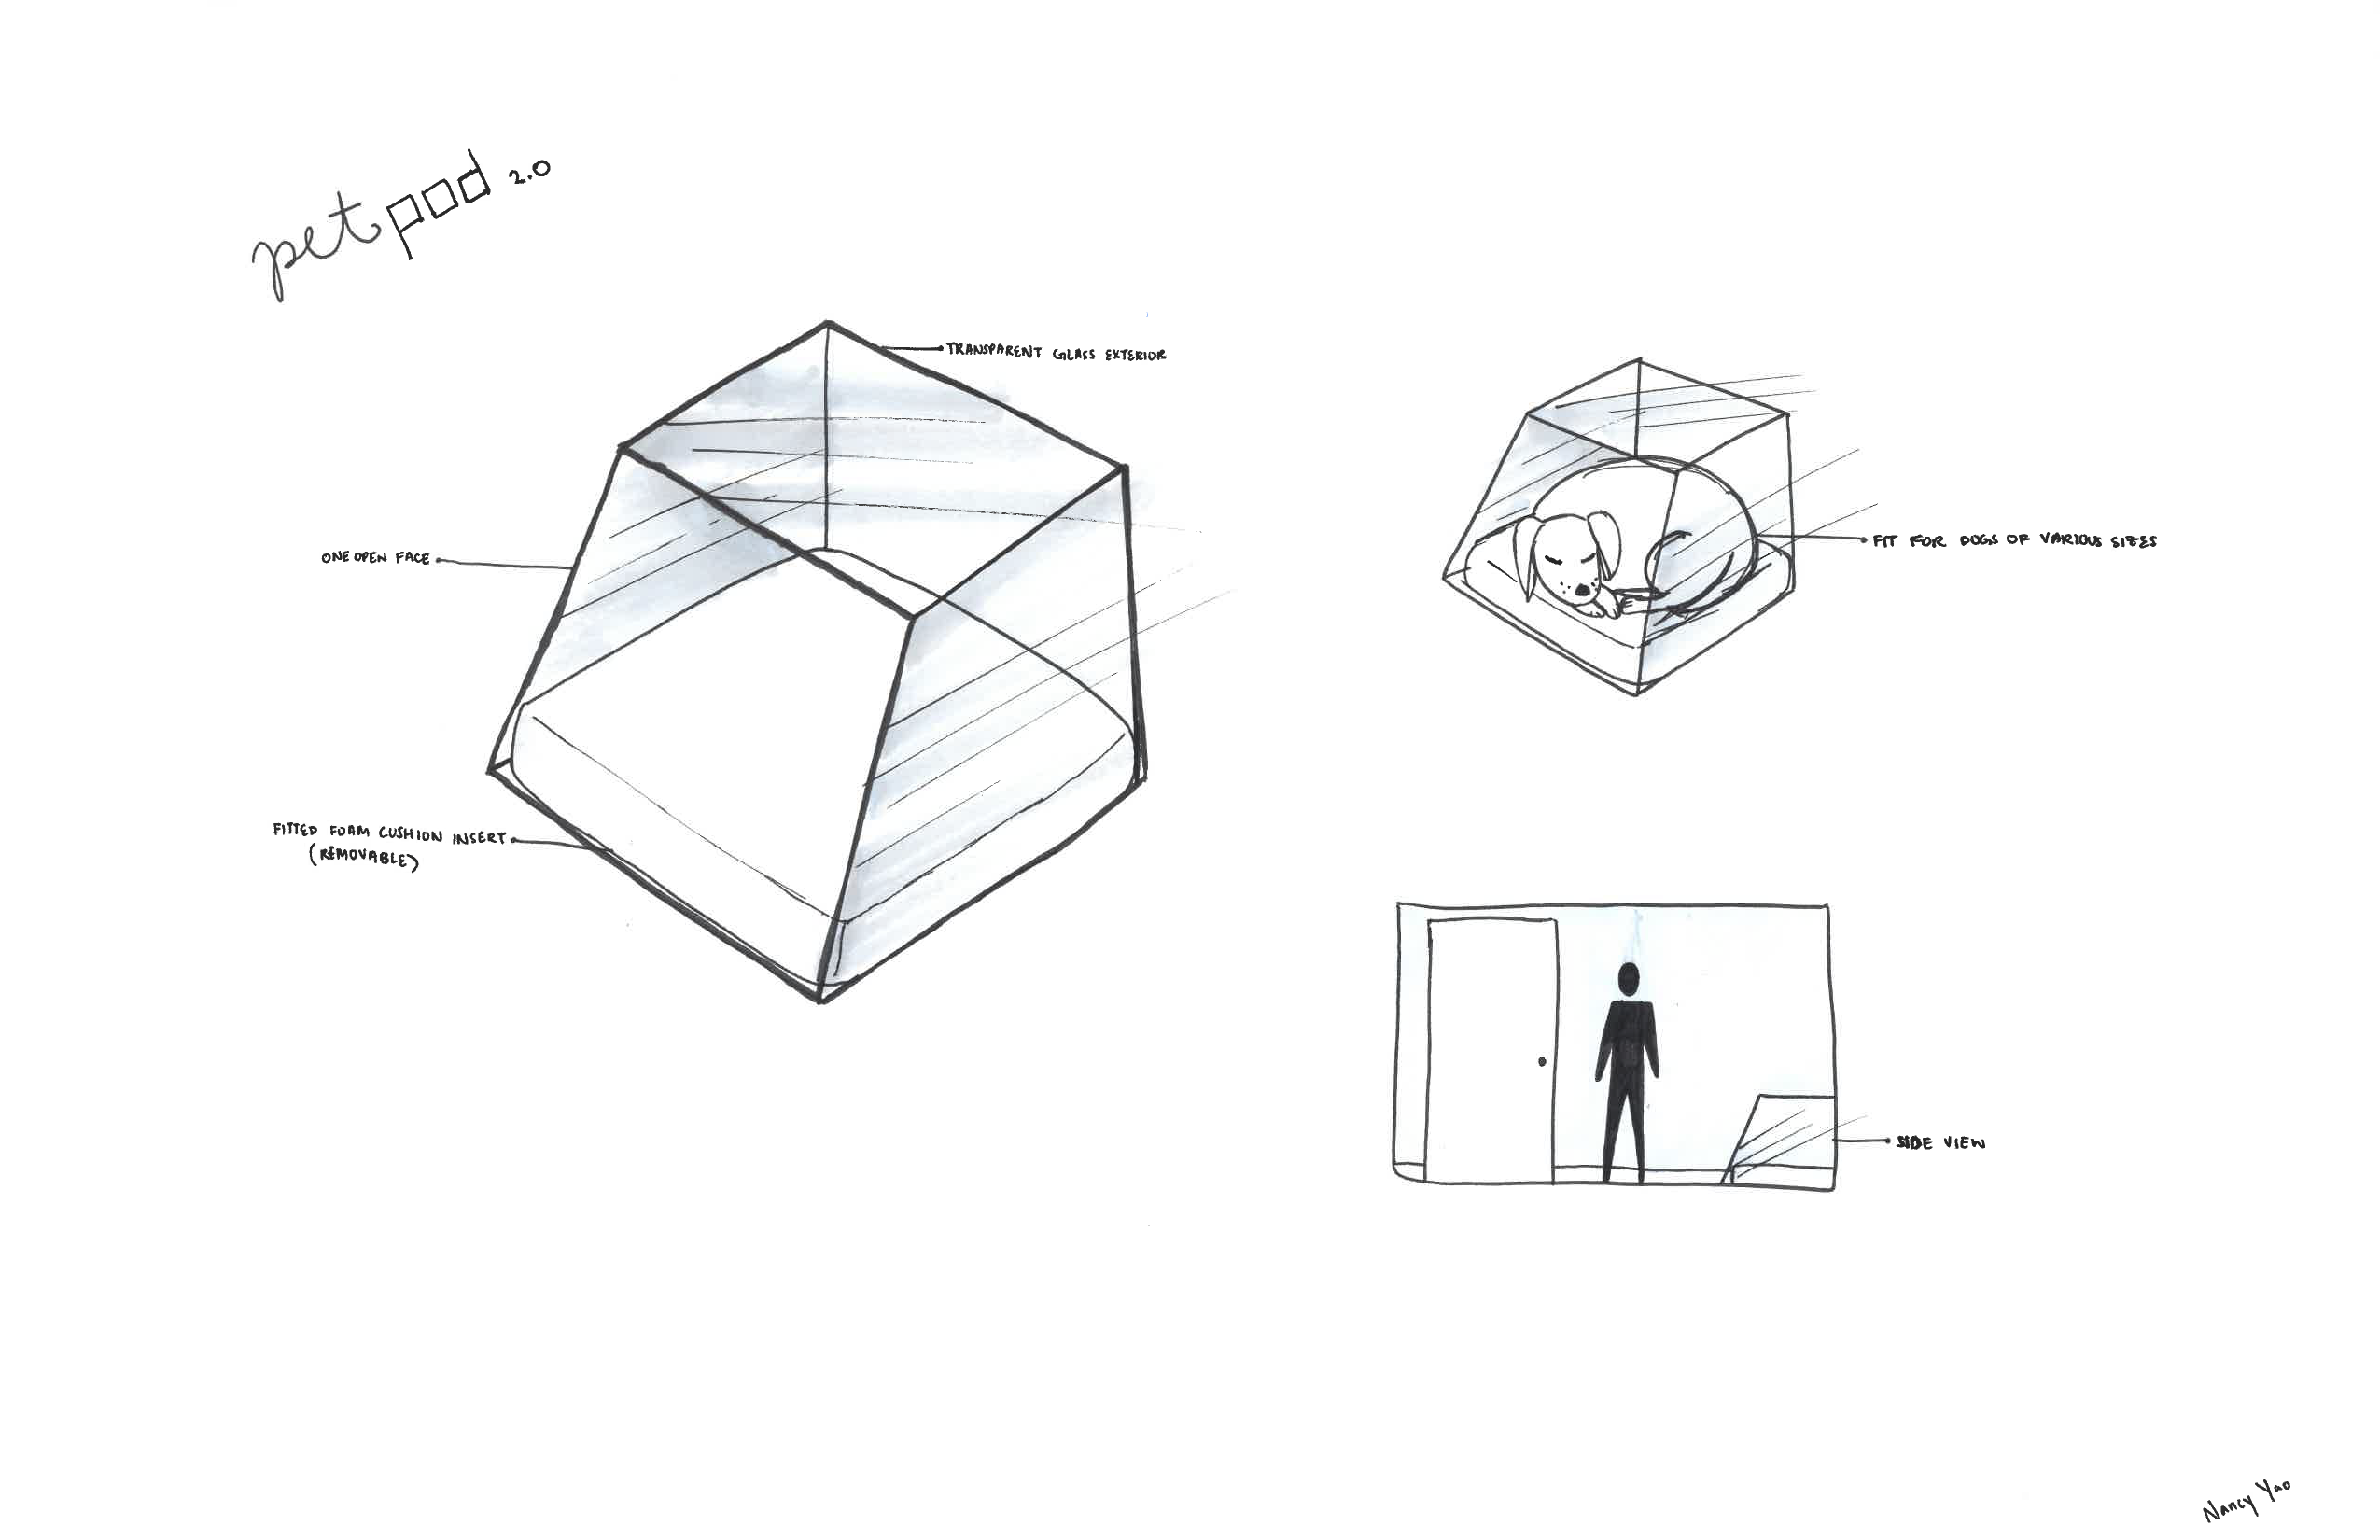 pet pod 2.0
TRANSPARENT GLASS EXTERIOR
ONE OPEN FACE
FITTED FOAM CUSHION INSERT
(REMOVABLE)
FIT FOR DOGS OF VARIOUS SIZES
SIDE VIEW
Nancy Yao